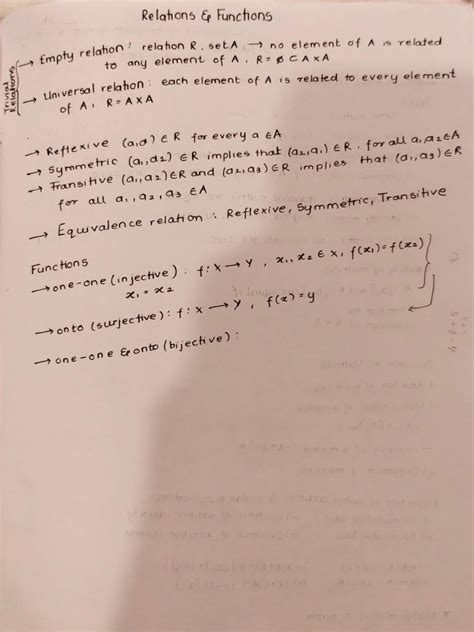 Relations & Functions
Trivial Relations
→ Empty relation: relation R, set A → no element of A is related
to any element of A, R = ∅ ⊂ A×A
→ Universal relation: each element of A is related to every element
of A, R = A×A
→ Reflexive (a,a) ∈ R for every a ∈ A
→ Symmetric (a₁,a₂) ∈ R implies that (a₂,a₁) ∈ R. for all a₁,a₂ ∈ A
→ Transitive (a₁,a₂) ∈ R and (a₂,a₃) ∈ R implies that (a₁,a₃) ∈ R
for all a₁,a₂,a₃ ∈ A
→ Equivalence relation: Reflexive, Symmetric, Transitive
Functions
→ one-one (injective): f: X → Y, x₁, x₂ ∈ X, f(x₁) = f(x₂)
x₁ = x₂
→ onto (surjective): f: X → Y, f(x) = y
→ one-one & onto (bijective):